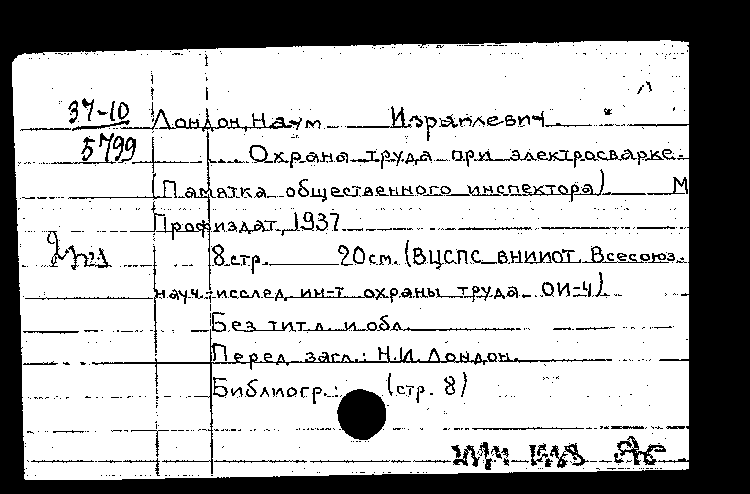 37-10
5799
Лондон, Наум Израилевич.
... Охрана труда при электросварке.
(Памятка общественного инспектора) М
Профиздат, 1937
8 стр. 20 см. (ВЦСПС ВНИИОТ. Всесоюз.
науч.-исслед. ин-т охраны труда. ОИ-4)
Без тит. л. и обл.
Перед загл.: Н.И. Лондон.
Библиогр.: (стр. 8)